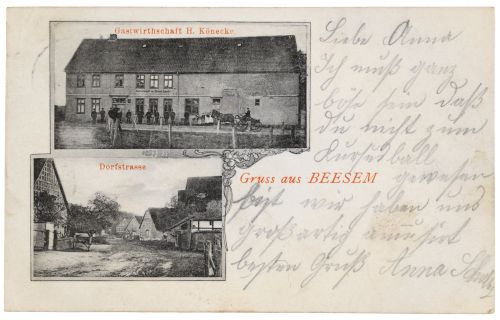 Gastwirthschaft H. Könecke.
Dorfstrasse
Gruss aus BEESEM
Liebe Anna
Ich muß ganz
böse sein daß
du nicht zum
ball gewesen
bist wir haben uns
großartig amüsirt
besten Gruß Anna